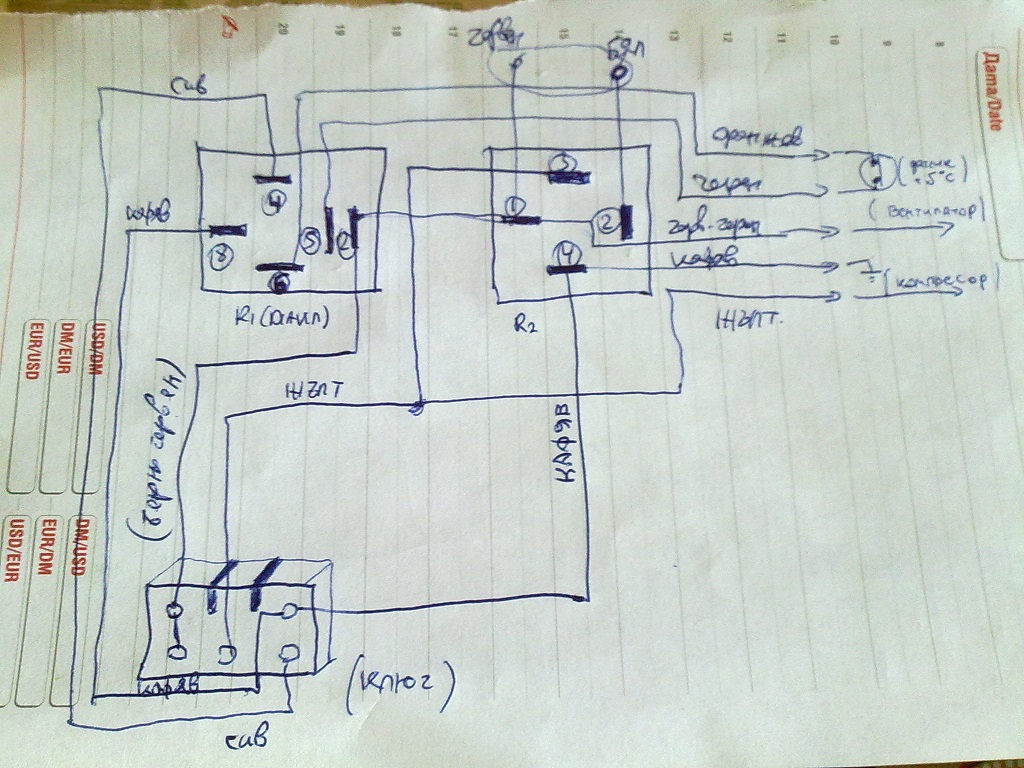 20 19 18 17 15 13 12 11 10 9 8
Дата/Date
черв
бял
сив
оранжев
(
+5°C)
4
3
черен
(вентилатор)
кафяв
1
2
черв-черен
8
5
2
кафяв
4
6
(компресор)
R1 (
R2
жълт
EUR/USD
DM/EUR
USD/DM
жълт
кафяв
USD/EUR
EUR/DM
DM/USD
кафяв
(ключ)
сив